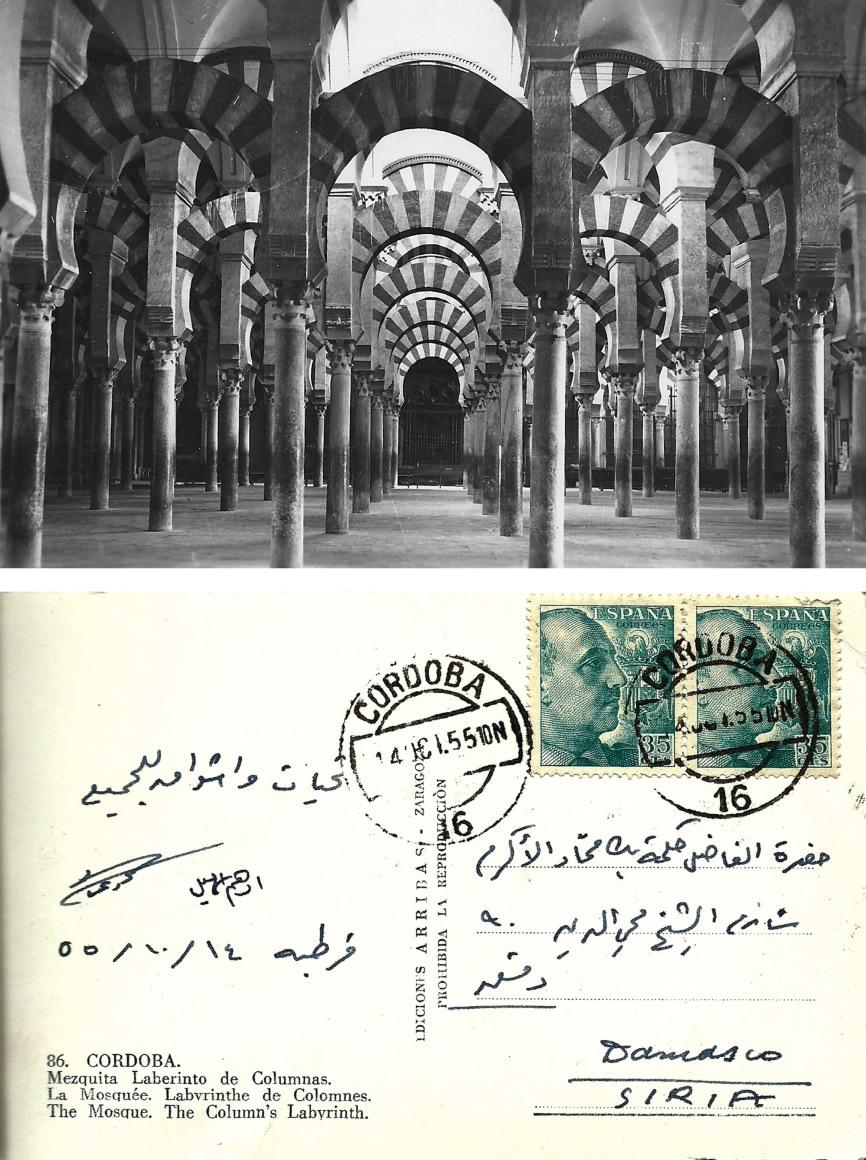 ESPAÑA
CORREOS
35
CTS
ESPAÑA
CORREOS
35
CTS
CORDOBA
14 OCT.55 10N
16
CORDOBA
OCT.55 10N
16
تحيات واشواق للجميع
قرطبه ١٤/١٠/٥٥
EDICIONES ARRIBAS - ZARAGOZA
PROHIBIDA LA REPRODUCCIÓN
حضرة الفاضل بك الأكرم
الشيخ محي الدين
دمشق
Damasco
SIRIA
86. CORDOBA.
Mezquita Laberinto de Columnas.
La Mosquée. Labyrinthe de Colomnes.
The Mosque. The Column's Labyrinth.